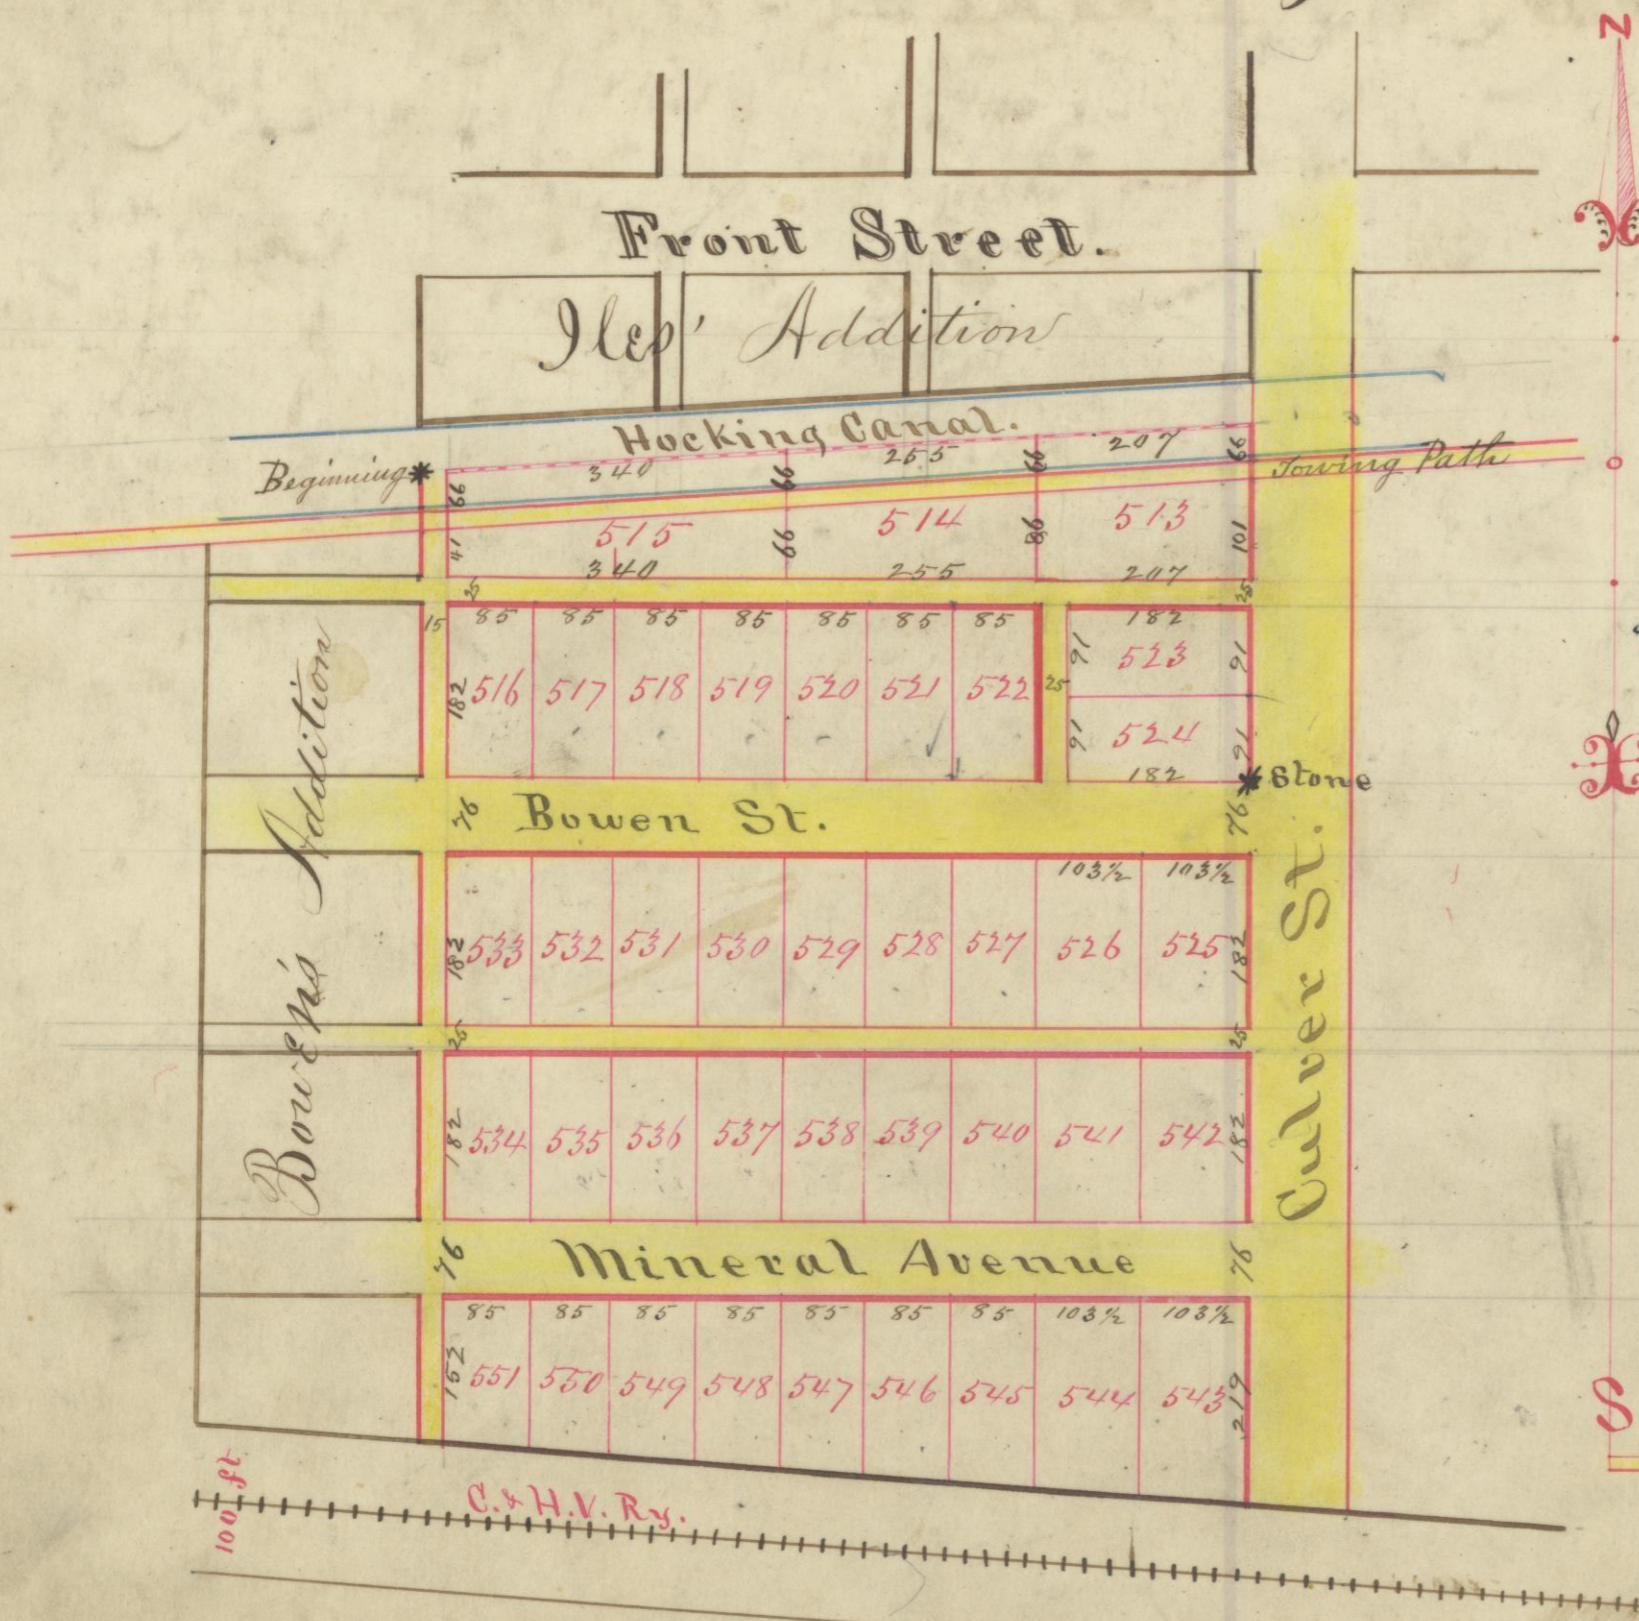 N
Front Street.
Iles' Addition
Hocking Canal.
Beginning
340 255 207
66 66 66 66
Towing Path
515 514 513
41 66 86 101
340 255 207
25 25
15 85 85 85 85 85 85 85 182
516 517 518 519 520 521 522
182 25
91 523 91
91 524 91
182
Stone
76 Bowen St. 76
Bowen's Addition
Culver St.
103½ 103½
182 533 532 531 530 529 528 527 526 525 182
25 25
182 534 535 536 537 538 539 540 541 542 182
76 Mineral Avenue 76
85 85 85 85 85 85 85 103½ 103½
152 551 550 549 548 547 546 545 544 543 219
S
100 ft
C. & H.V. Ry.